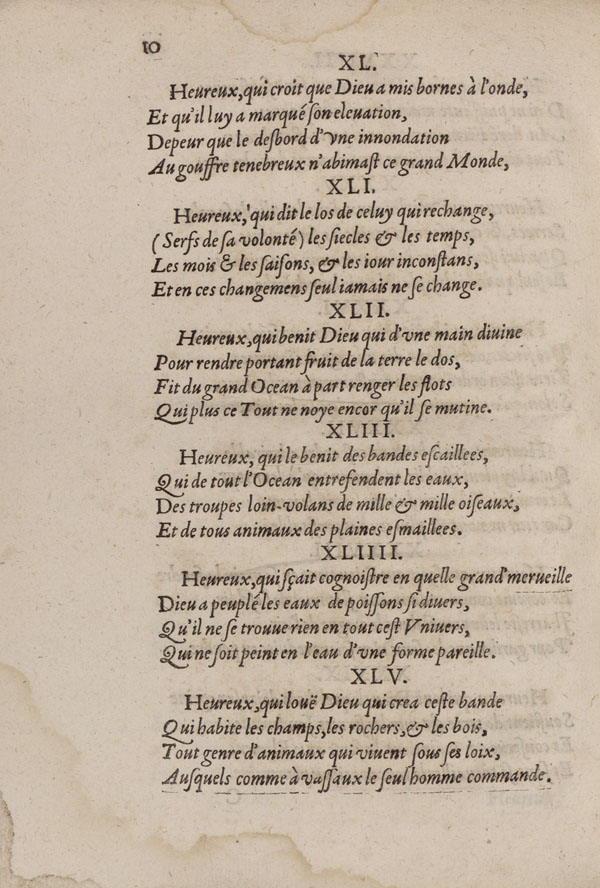 10
XL.
Heureux, qui croit que Dieu a mis bornes à l'onde,
Et qu'il luy a marqué ſon eleuation,
Depeur que le desbord d'vne innondation
Au gouffre tenebreux n'abimaſt ce grand Monde,
XLI.
Heureux, qui dit le los de celuy qui rechange,
(Serfs de ſa volonté) les ſiecles & les temps,
Les mois & les ſaiſons, & les iour inconſtans,
Et en ces changemens ſeul iamais ne ſe change.
XLII.
Heureux, qui benit Dieu qui d'vne main diuine
Pour rendre portant fruit de la terre le dos,
Fit du grand Ocean à part renger les flots
Qui plus ce Tout ne noye encor qu'il ſe mutine.
XLIII.
Heureux, qui le benit des bandes eſcaillees,
Qui de tout l'Ocean entrefendent les eaux,
Des troupes loin-volans de mille & mille oiſeaux,
Et de tous animaux des plaines eſmaillees.
XLIIII.
Heureux, qui ſçait cognoiſtre en quelle grand' merueille
Dieu a peuplé les eaux de poiſſons ſi diuers,
Qu'il ne ſe trouue rien en tout ceſt Vniuers,
Qui ne ſoit peint en l'eau d'vne forme pareille.
XLV.
Heureux, qui louë Dieu qui crea ceſte bande
Qui habite les champs, les rochers, & les bois,
Tout genre d'animaux qui viuent ſous ſes loix,
Auſquels comme à vaſſaux le ſeul homme commande.